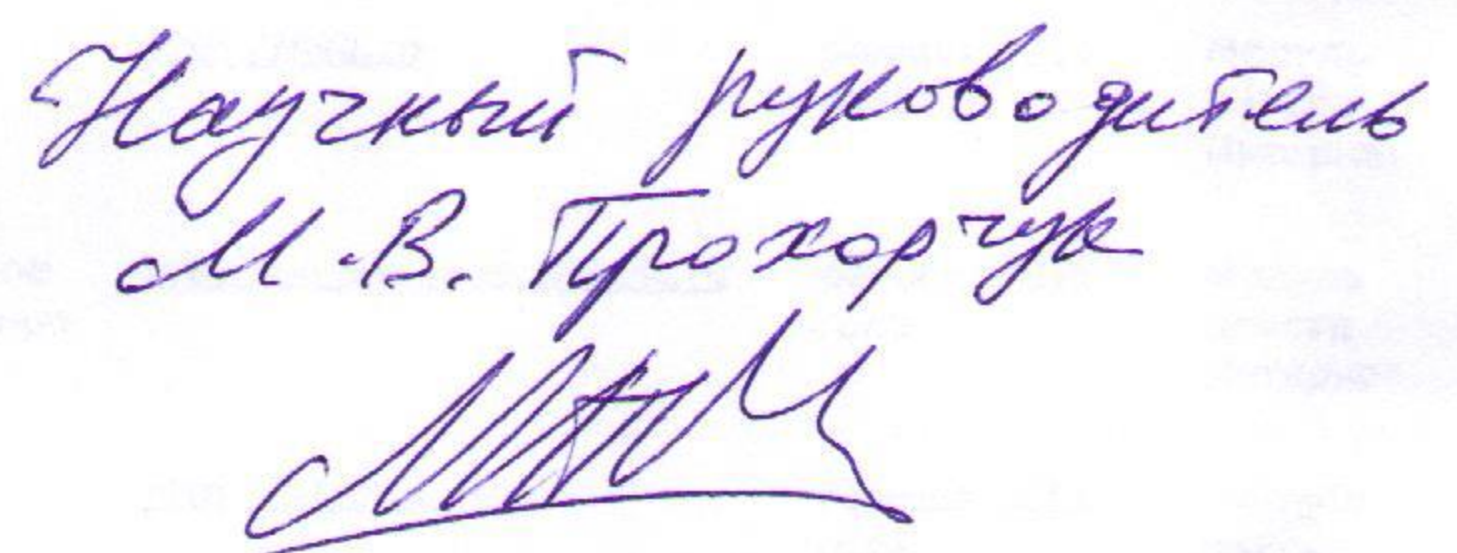 Научный руководитель
М.В. Прохорчук